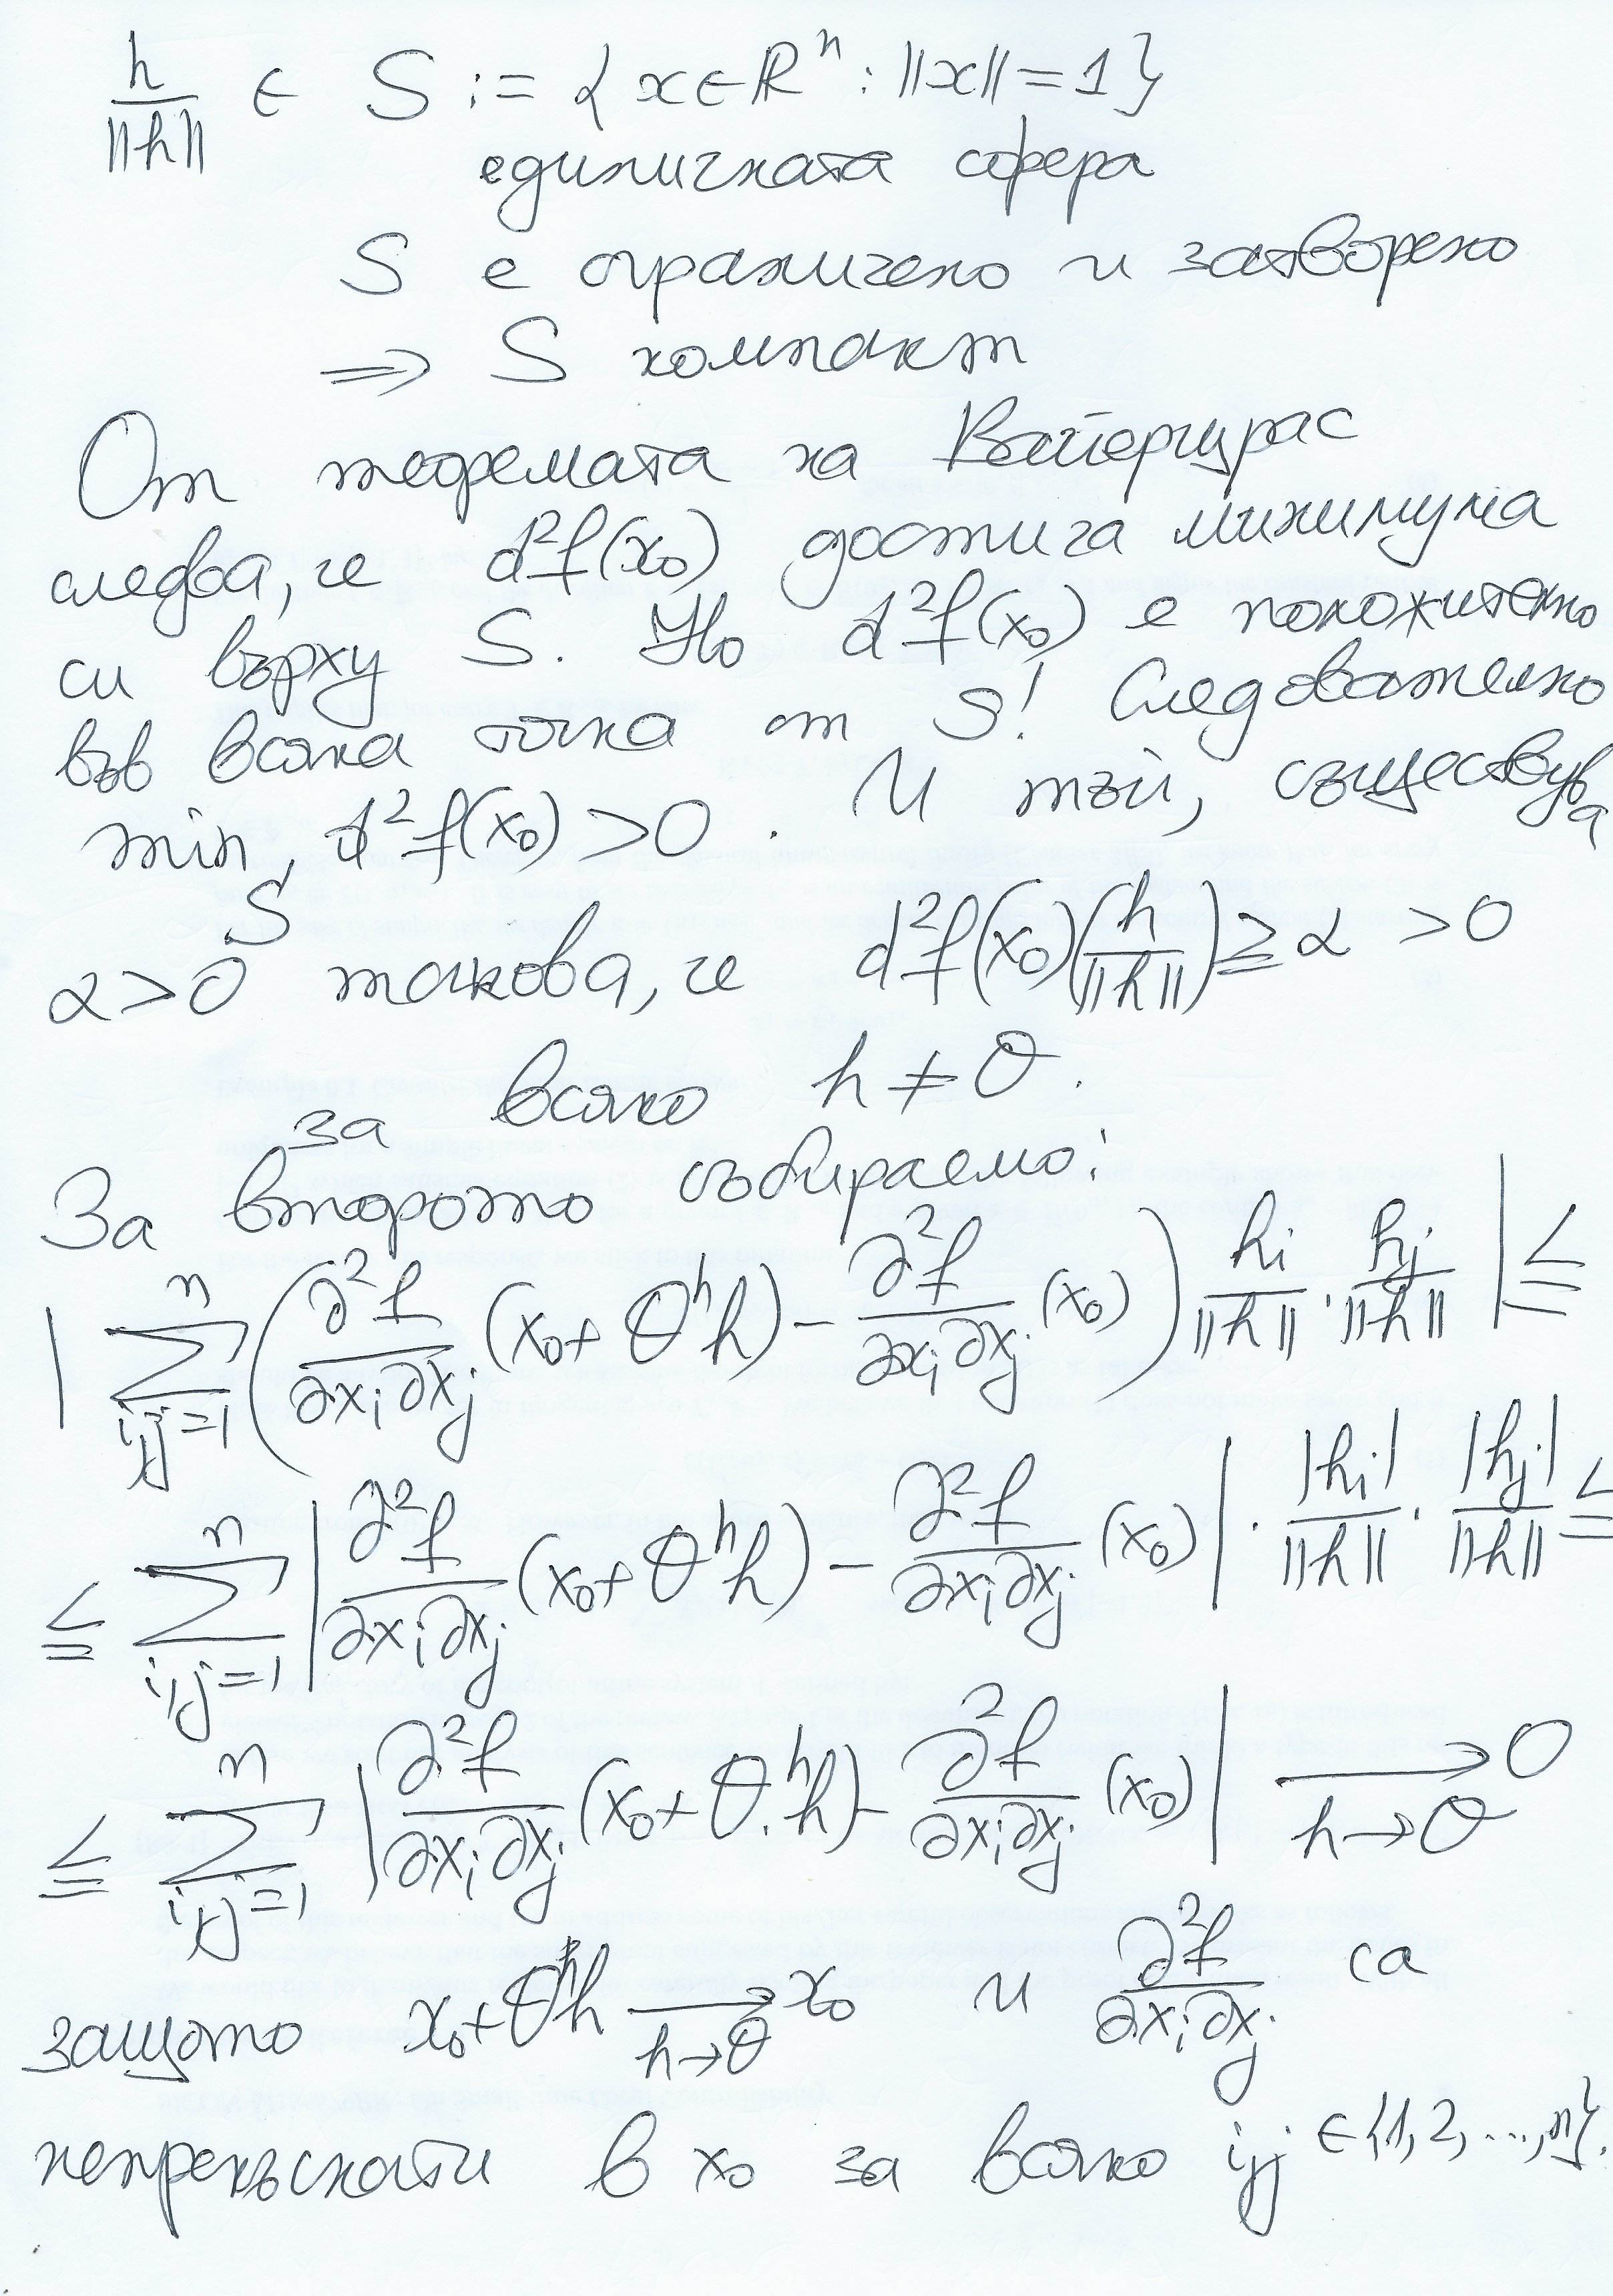 h/||h|| ∈ S := { x ∈ ℝⁿ : ||x|| = 1 }
единичната сфера
S е ограничено и затворено
⇒ S компакт
От теоремата на Вайерщрас
следва, че d²f(x₀) достига минимума
си върху S. Но d²f(x₀) е положително
във всяка точка от S! Следователно
min_S d²f(x₀) > 0. И тъй, съществува
α > 0 такова, че d²f(x₀)(h/||h||) ≥ α > 0
за всяко h ≠ 0.
За второто събираемо:
| ∑_{i,j=1}^n ( ∂²f/∂x_i∂x_j (x₀ + θʰh) − ∂²f/∂x_i∂x_j (x₀) ) h_i/||h|| . h_j/||h|| | ≤
≤ ∑_{i,j=1}^n | ∂²f/∂x_i∂x_j (x₀ + θʰh) − ∂²f/∂x_i∂x_j (x₀) | . |h_i|/||h|| . |h_j|/||h|| ≤
≤ ∑_{i,j=1}^n | ∂²f/∂x_i∂x_j (x₀ + θʰ.h) − ∂²f/∂x_i∂x_j (x₀) | →_{h→0} 0
защото x₀ + θʰh →_{h→0} x₀ и ∂²f/∂x_i∂x_j са
непрекъснати в x₀ за всяко i,j ∈ {1, 2, ..., n}.